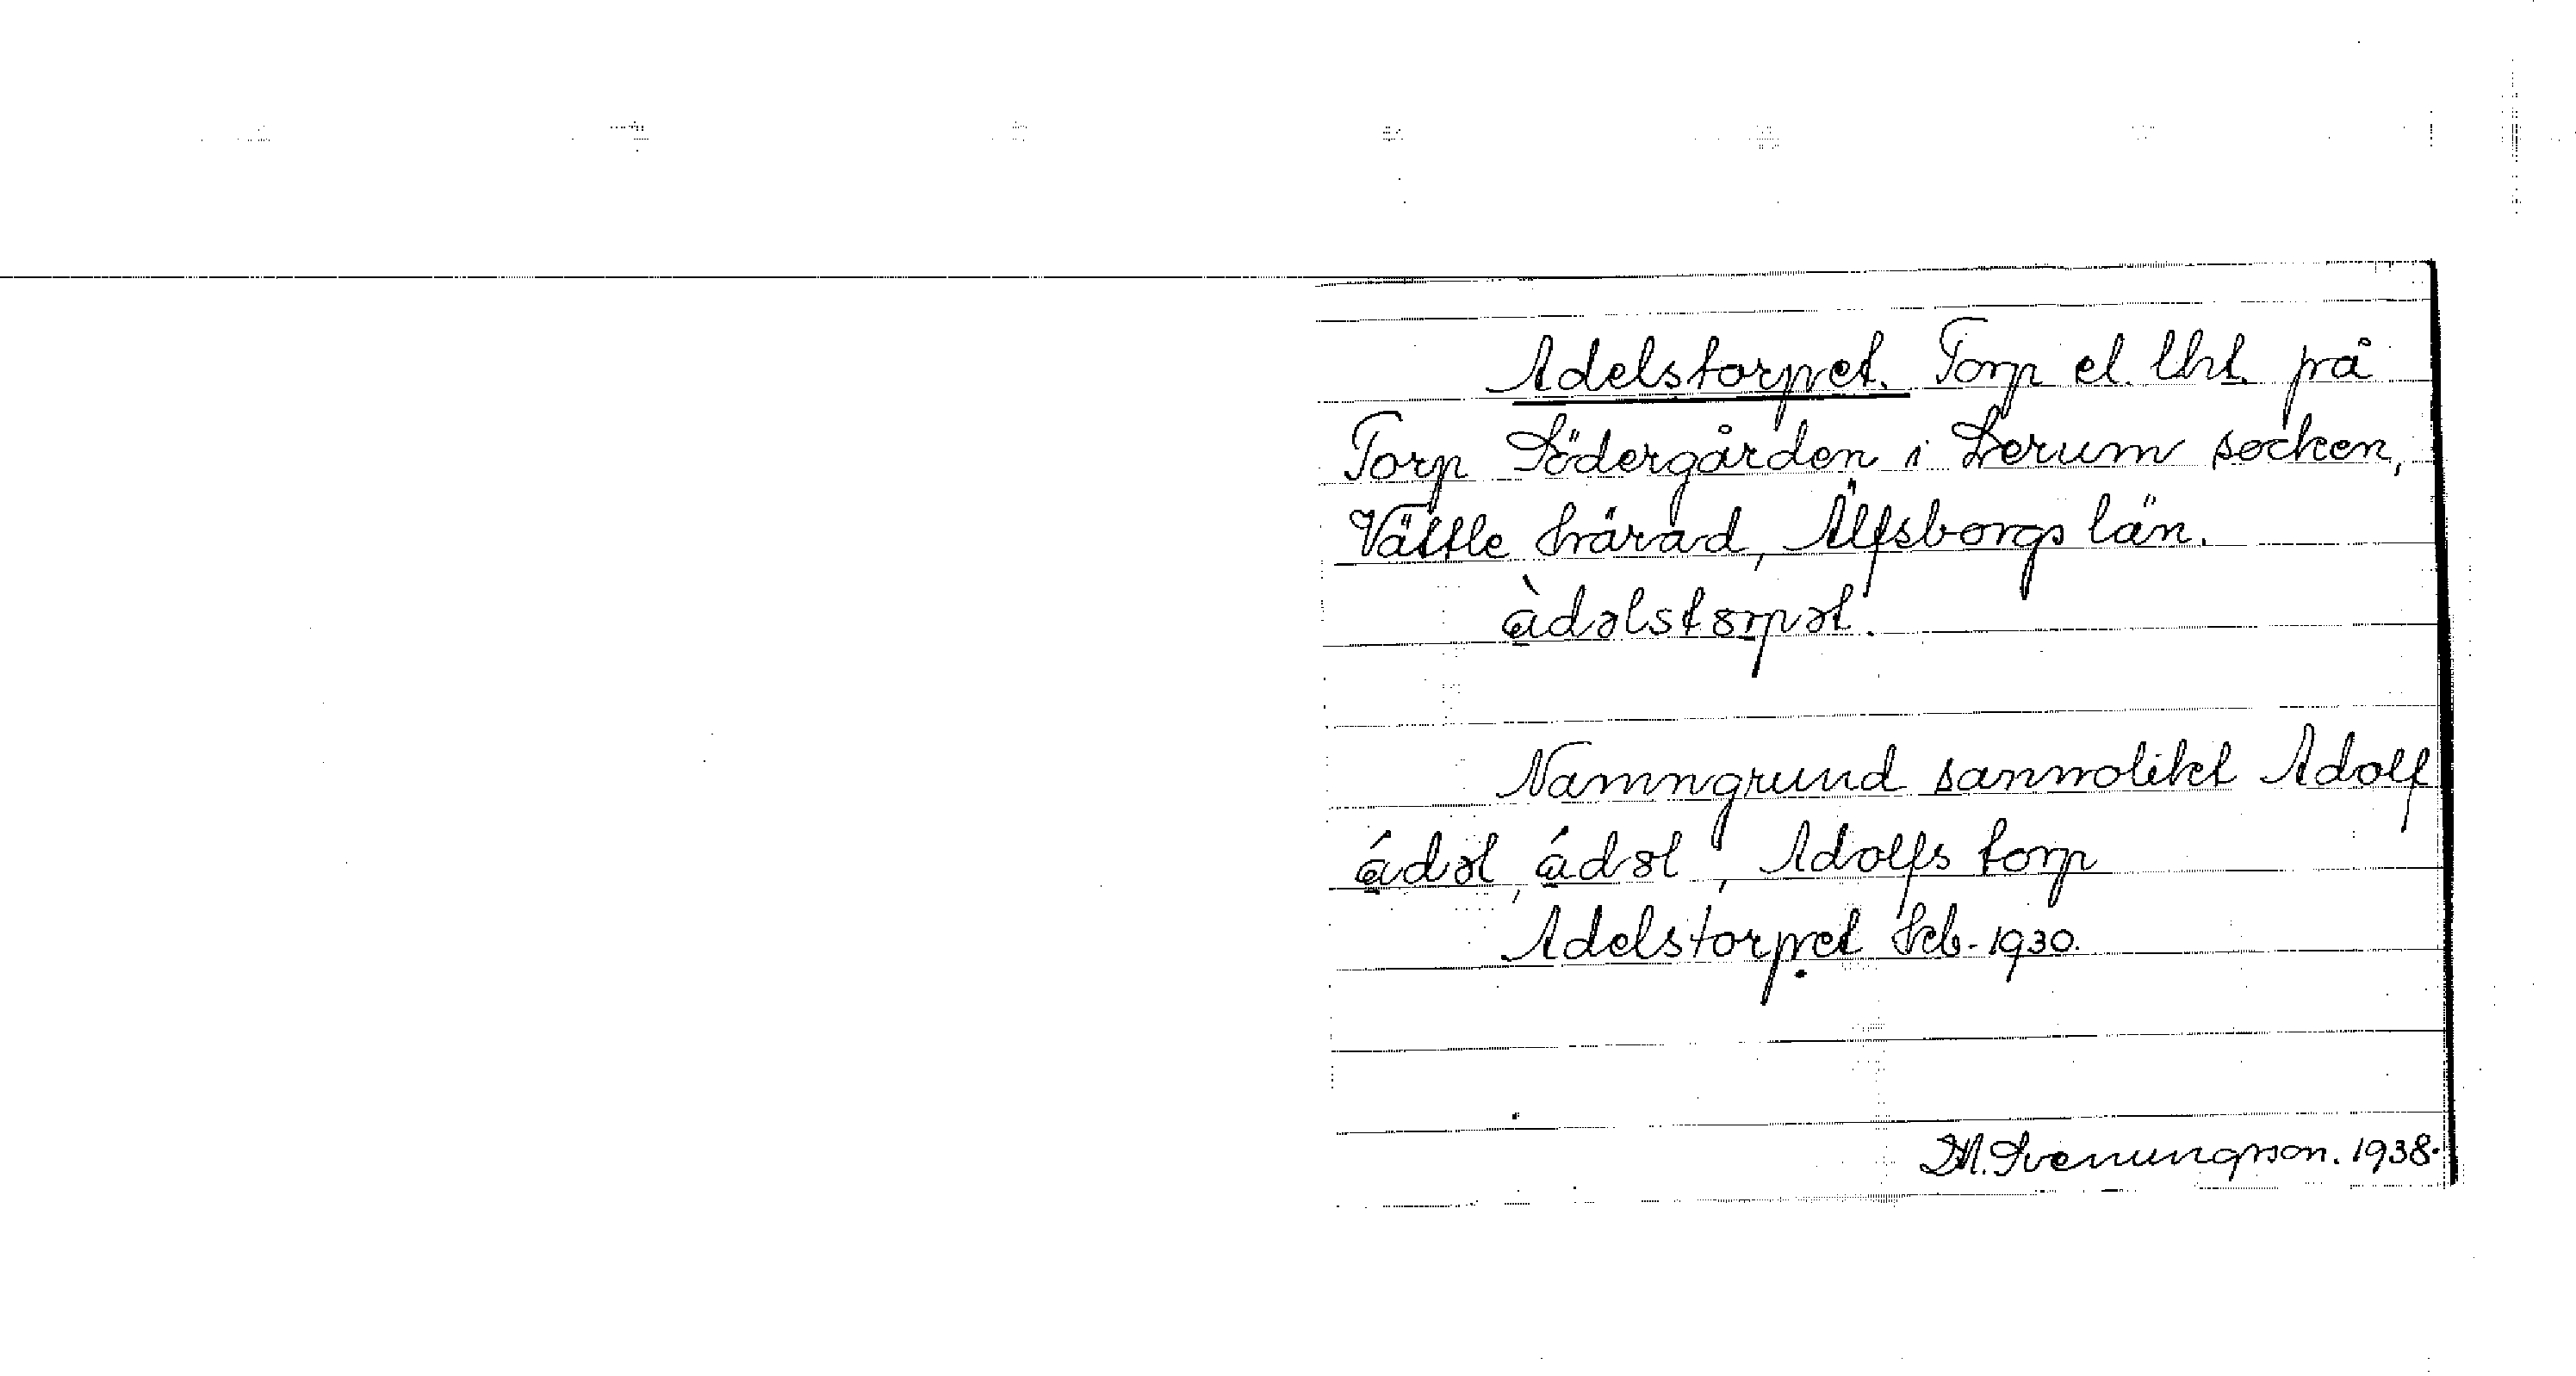 Adelstorpet. Torp el. lht. på
Torp Södergården i Lerum socken,
Vättle härad, Älfsborgs län.
àdəlstorpət.
Namngrund sannolikt Adolf
ádəl, ádol, Adolfs torp
Adelstorpet hcb. 1930.
D.M. Svenungsson. 1938.